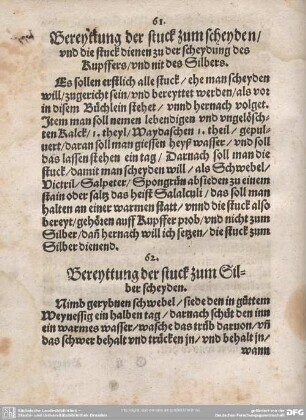 61.
Bereyttung der stuck zum scheyden/
vnd die stuck dienen zu der scheydung des
Kupffers/vnd nit des Silbers.
Es sollen erstlich alle stuck/ehe man scheyden
will/zugericht sein/vnd bereyttet werden/als vor
in disem Büchlein stehet/vnnd hernach volget.
Item man soll nemen lebendigen vnd vngelösch-
ten Kalck/1. theyl/Waydaschen 1. theil/gepul-
uert/daran soll man giessen heyß wasser/vnd soll
das lassen stehen ein tag/Darnach soll man die
stuck/damit man scheyden will/als Schwebel/
Victril/Salpeter/Spongrün absieden zu einem
stain oder saltz das heist Salalculi/das soll man
halten an einer warmen statt/vnnd die stuck also
bereyt/gehören auff Kupffer prob/vnd nicht zum
Silber/dañ hernach will ich setzen/die stuck zum
Silber dienend.
62.
Bereyttung der stuck zum Sil-
ber scheyden.
Nimb gerybnen schwebel/siede den in gůttem
Weynessig ein halben tag/darnach schüt den inn
ein warmes wasser/wasche das trüb daruon/vñ
das schwer behalt vnd trücken jn/vnd behalt jn/
wann